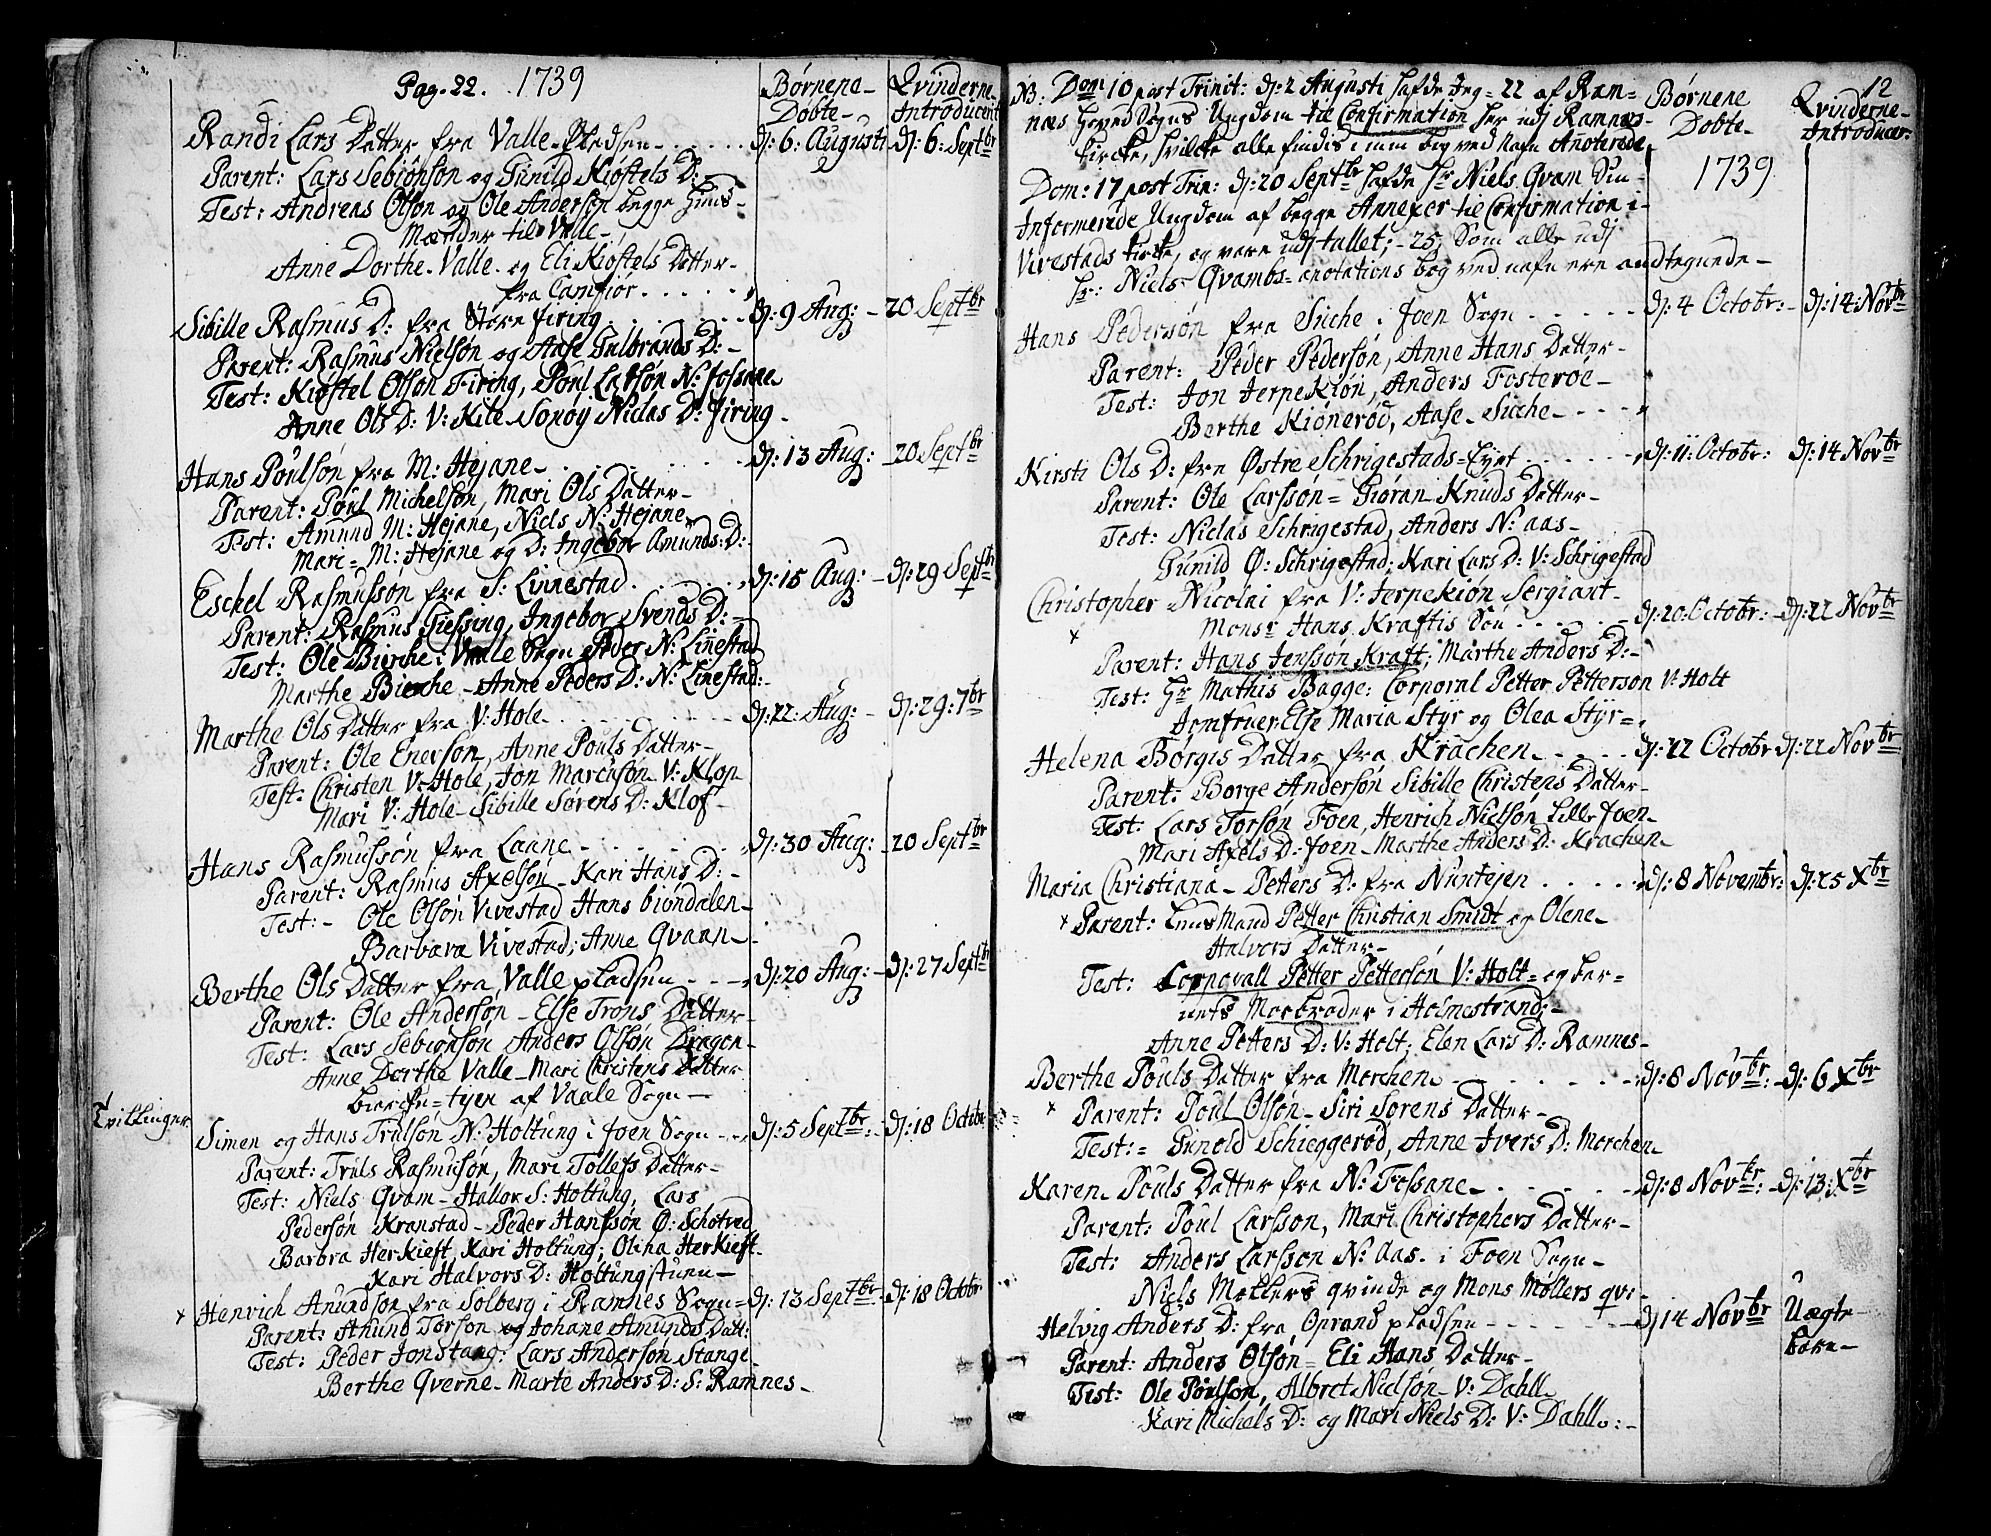 Pag. 22. 1739
Børnene Døbte
Qvinderne Introducert
Randi Lars Datter fra Valle-Pladsen - d: 6: Augusti d: 6: Septbr
Parent: Lars Sebiønsøn og Gunild Kiøstels D:
Test: Andreas Olsøn og Ole Andersøn begge Huus-
Mænder til Valle
Anne Dorthe Valle og Eli Kiøstels Datter
fra Camfiør
Sibille Rasmus D: fra Store firing d: 9 Aug: - 20 Septbr
Parent: Rasmus Nielsøn og Aase Gulbrands D:
Test: Kiøstel Olsøn Firing, Poul Larsøn N: Fossane
Anne Ols D: V: Kile Niclas D: firing
Hans Poulsøn fra M: Hejane d: 13 Aug: - 20 Septbr
Parent: Poul Michelsøn, Mari Ols Datter
Test: Amund M: Hejane, Niels N: Hejane
Mari M: Hejane og D: Ingebor Amunds D:
Eschel Rasmussøn fra S: Linnestad d: 15 Aug: - d: 29 Septbr
Parent: Rasmus Giessing, Ingebor Svends D:
Test: Ole Bierche i Vaale Sogn Peder N: Linestad
Marthe Bierche - Anne Peders D: N: Linestad:
Marthe Ols Datter fra V: Hole d: 22: Aug: - d: 29: 7br
Parent: Ole Enersøn, Anne Pouls Datter
Test: Christen V: Hole, Jon Marcusøn V: Klop
Mari V: Hole - Sibille Sørens D: Klop
Hans Rasmussøn fra Laane d: 30 Aug: - 20 Septbr
Parent: Rasmus Axelsøn - Kari Hans D:
Test: - Ole Olsøn Vivestad Hans biøndalen
Barbara Vivestad, Anne Qvaan
Berthe Ols Datter fra Valle pladsen d: 20 Aug: - d: 27 Septbr
Parent: Ole Andersøn - Else Trons Datter
Test: Lars Sebiønsøn Anders Olsøn Dragon
Anne Dorthe Valle - Mari Christens Datter
biercke-ejen af Vaale Sogn
Tvillinger
Simen og Hans Trulsøn N: Holtung i foen Sogn d: 5 Septbr: - d: 18 Octobr
Parent: Truls Rasmusøn, Mari Tollefs Datter
Test: Niels Qvam - Hallor S: Holtung, Lars
Pedersøn Kranstad - Peder Hanssøn Ø: Schotved
Barbra Herkieft, Kari Holtung; Olina Herkieft
Kari Halvors D: Holtungstuen
x Henrich Anundsøn fra Solberg i Ramnes Sogn d: 13 Septbr d: 18 Octobr
Parent: Anund Torson og Johane Amunds Datt:
Test: Peder Jonstang: Lars Anderson Stange
Berthe Qverne - Marte Anders D: S: Ramnes
12
NB: Dom 10 post Trinit: d: 2 Augusti hafde Jeg 22 af Ram-
næs Hoved Sogns Ungdom til Confirmation her udj Ramnæs
Kircke, hvilcke alle findis i min bog ved Nafn Anoterede
Børnene Døbte
Qvinderne Introducer:
1739
Dom: 17 post Trin: d: 20 Septbr hafde Hr Niels Qvam Sin
Informerede Ungdom af begge Annexer til Confirmation i
Vivestads kircke, og vare udj tallet: 25, Som alle udj
Hr: Niels Qvambs anotations bog ved nafn ere andtegnede
Hans Pedersøn fra Suche i foen Sogn d: 4 Octobr: - d: 14: Novbr
Parent: Peder Pedersøn, Anne Hans Datter
Test: Jon Jerpekiøn, Anders Fosteroe
Berthe Kiønerød, Aase Suche
Kirsti Ols D: fra Østre Schrigestads-Eyet d: 11: Octobr: d: 14 Novbr
Parent: Ole Larssøn - Giøran Knuds Datter
Test: Niclas Schrigestad, Anders N: aas
Gunild Ø: Schrigestad; Kari Lars D: V: Schrigestad
Christopher Nicolai fra V: Jerpekiøn Sergiant
x Monsr Hans Kraftis Søn d: 20 Octobr: - d: 22 Novbr
Parent: Hans Jenssøn Kraft; Marthe Anders D:
Test: Hr Mathis Bagge: Corporal Petter Petterson V: Holt
Jomfruer Else Maria Styr og Olea Styr
Helena Børgis Datter fra Krachen d: 22 Octobr d: 22 Novbr
Parent: Borge Andersøn Sibille Christens Datter
Test: Lars Torsøn Foen, Henrich Nielsøn Lille foen
Mari Axels D: foen - Marthe Anders D: Krachen
Maria Christiana - Petters D: fra Nuntejen d: 8 Novembr: d: 25 Xbr
x Parent: Huus Mand Petter Christian Smidt og Olene
Halvors Datter
Test: Corporall Petter Pettersøn V: Holt - og bar-
nets Morbroder i Holmestrand
Anne Petters D: V: Holt; Elen Lars D: Ramnes
Berthe Pouls Datter fra Morchen d: 8 Novbr: - d: 6 Xbr
x Parent: Poul Olsøn - Siri Sørens Datter
Test: Gunold Schieggerød, Anne Ivers D: Morchen
Karen Pouls Datter fra N: Fossane d: 8 Novbr: - d: 13: Xbr
Parent: Poul Larsson, Mari Christophers Datter
Test: Anders Larsson N: Aas i Foen Sogn
Niels Møllers qvinde og Mons Møllers qvi:
Helvig Anders D: fra Oprand pladsen d 14 Novbr Uægte barn
Parent: Anders Olsøn - Eli Hans Datter
Test: Ole Poulsøn, Albret Nielsøn V: Dahll
Kari Michels D: og Mari Niels D: V: Dahll: